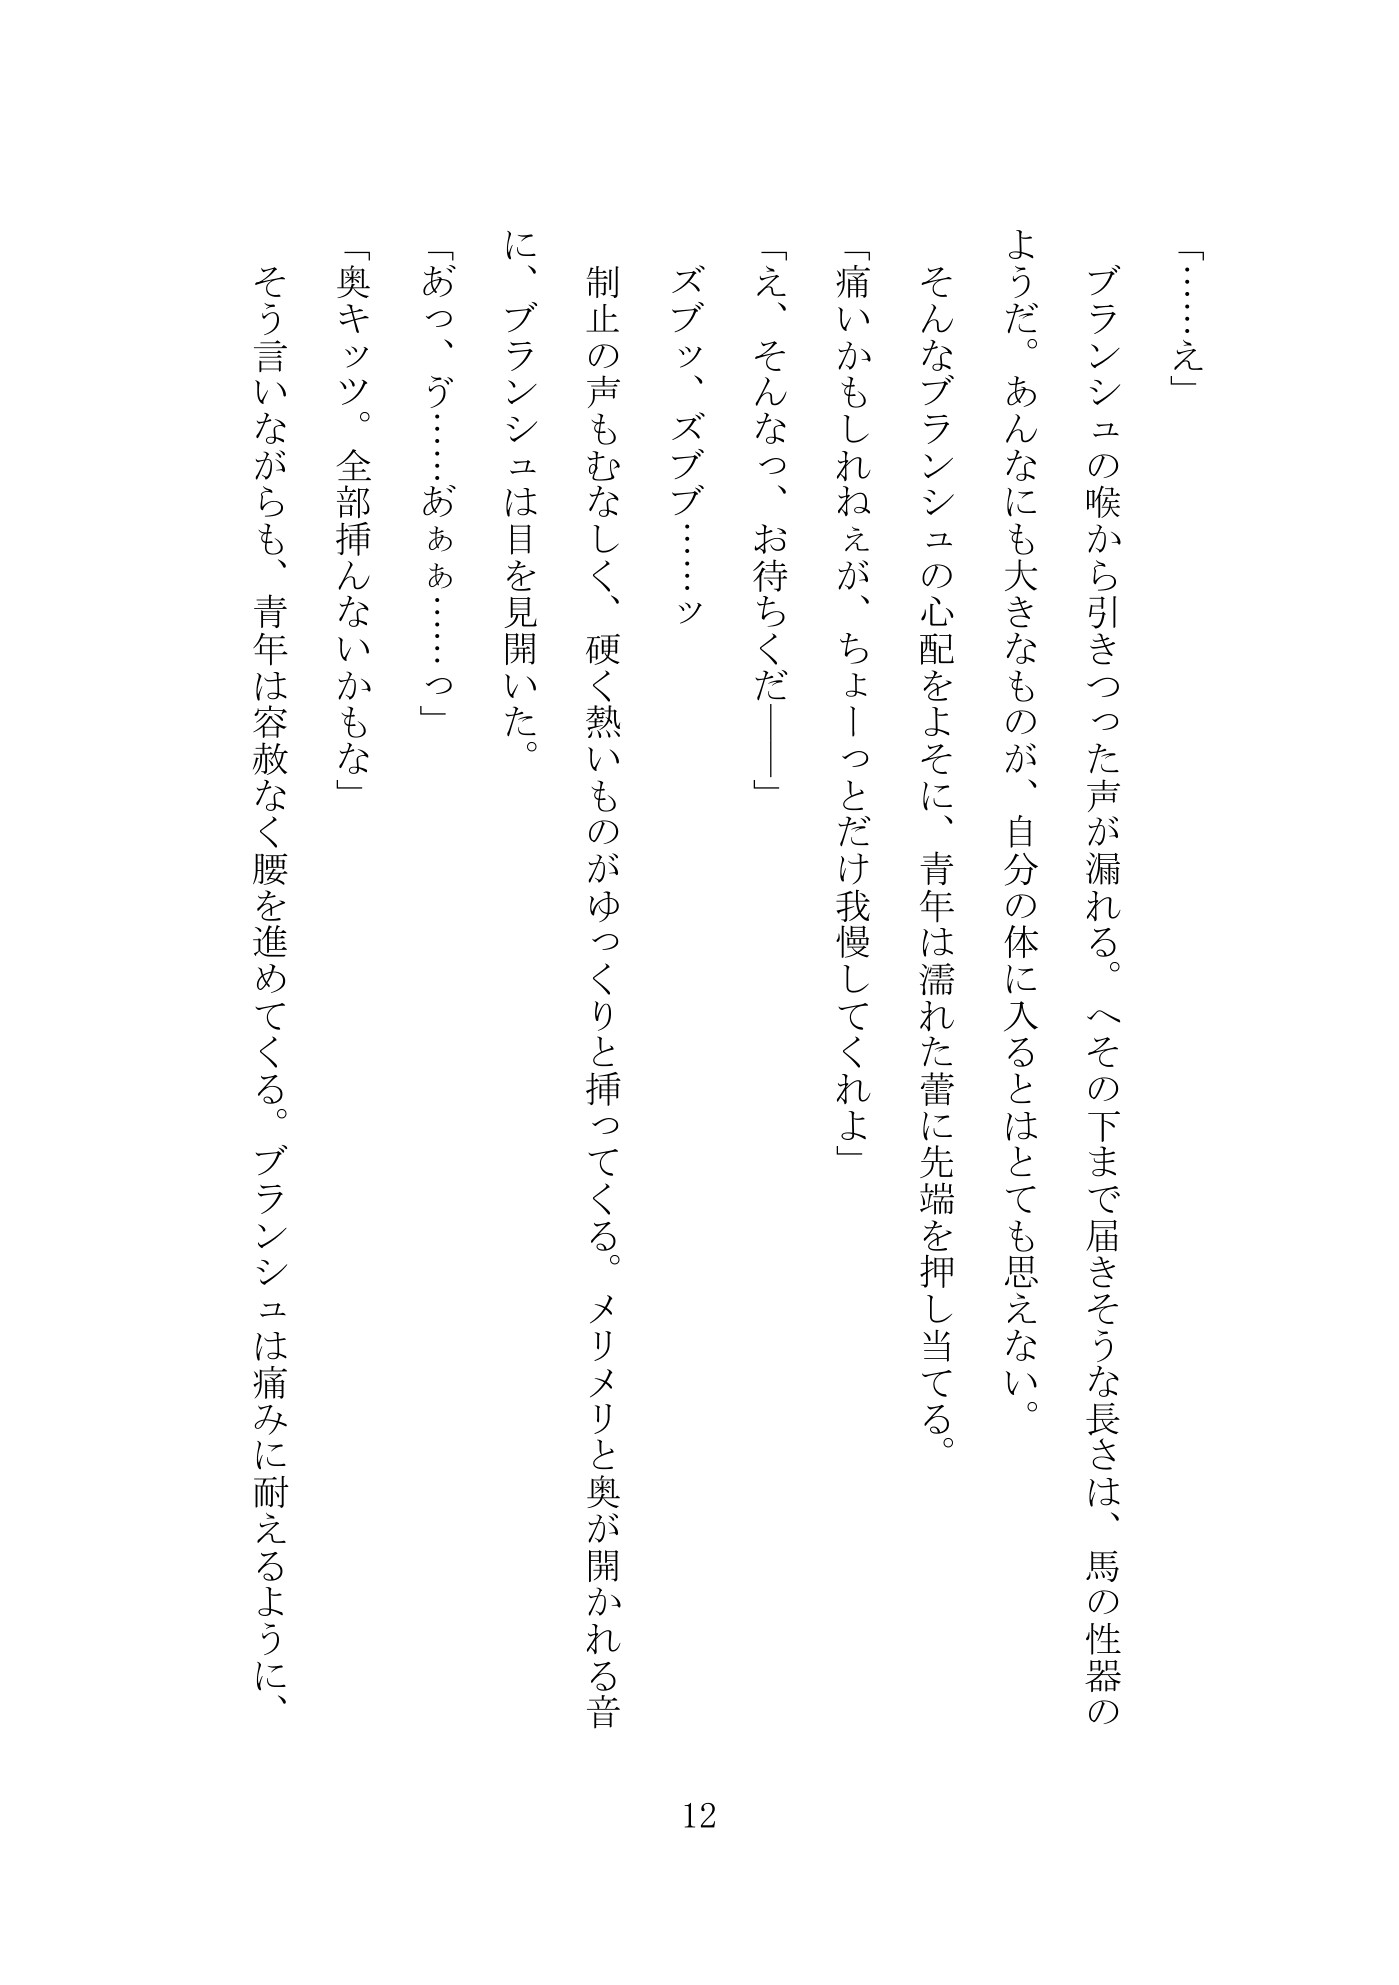 「……え」
ブランシュの喉から引きつった声が漏れる。へその下まで届きそうな長さは、馬の性器の
ようだ。あんなにも大きなものが、自分の体に入るとはとても思えない。
そんなブランシュの心配をよそに、青年は濡れた蕾に先端を押し当てる。
「痛いかもしれねぇが、ちょーっとだけ我慢してくれよ」
「え、そんなっ、お待ちくだ――」
ズブッ、ズブブ……ッ
制止の声もむなしく、硬く熱いものがゆっくりと挿ってくる。メリメリと奥が開かれる音
に、ブランシュは目を見開いた。
「あ゙っ、ゔ……あ゙ぁぁ……っ」
「奥キッツ。全部挿んないかもな」
そう言いながらも、青年は容赦なく腰を進めてくる。ブランシュは痛みに耐えるように、
12